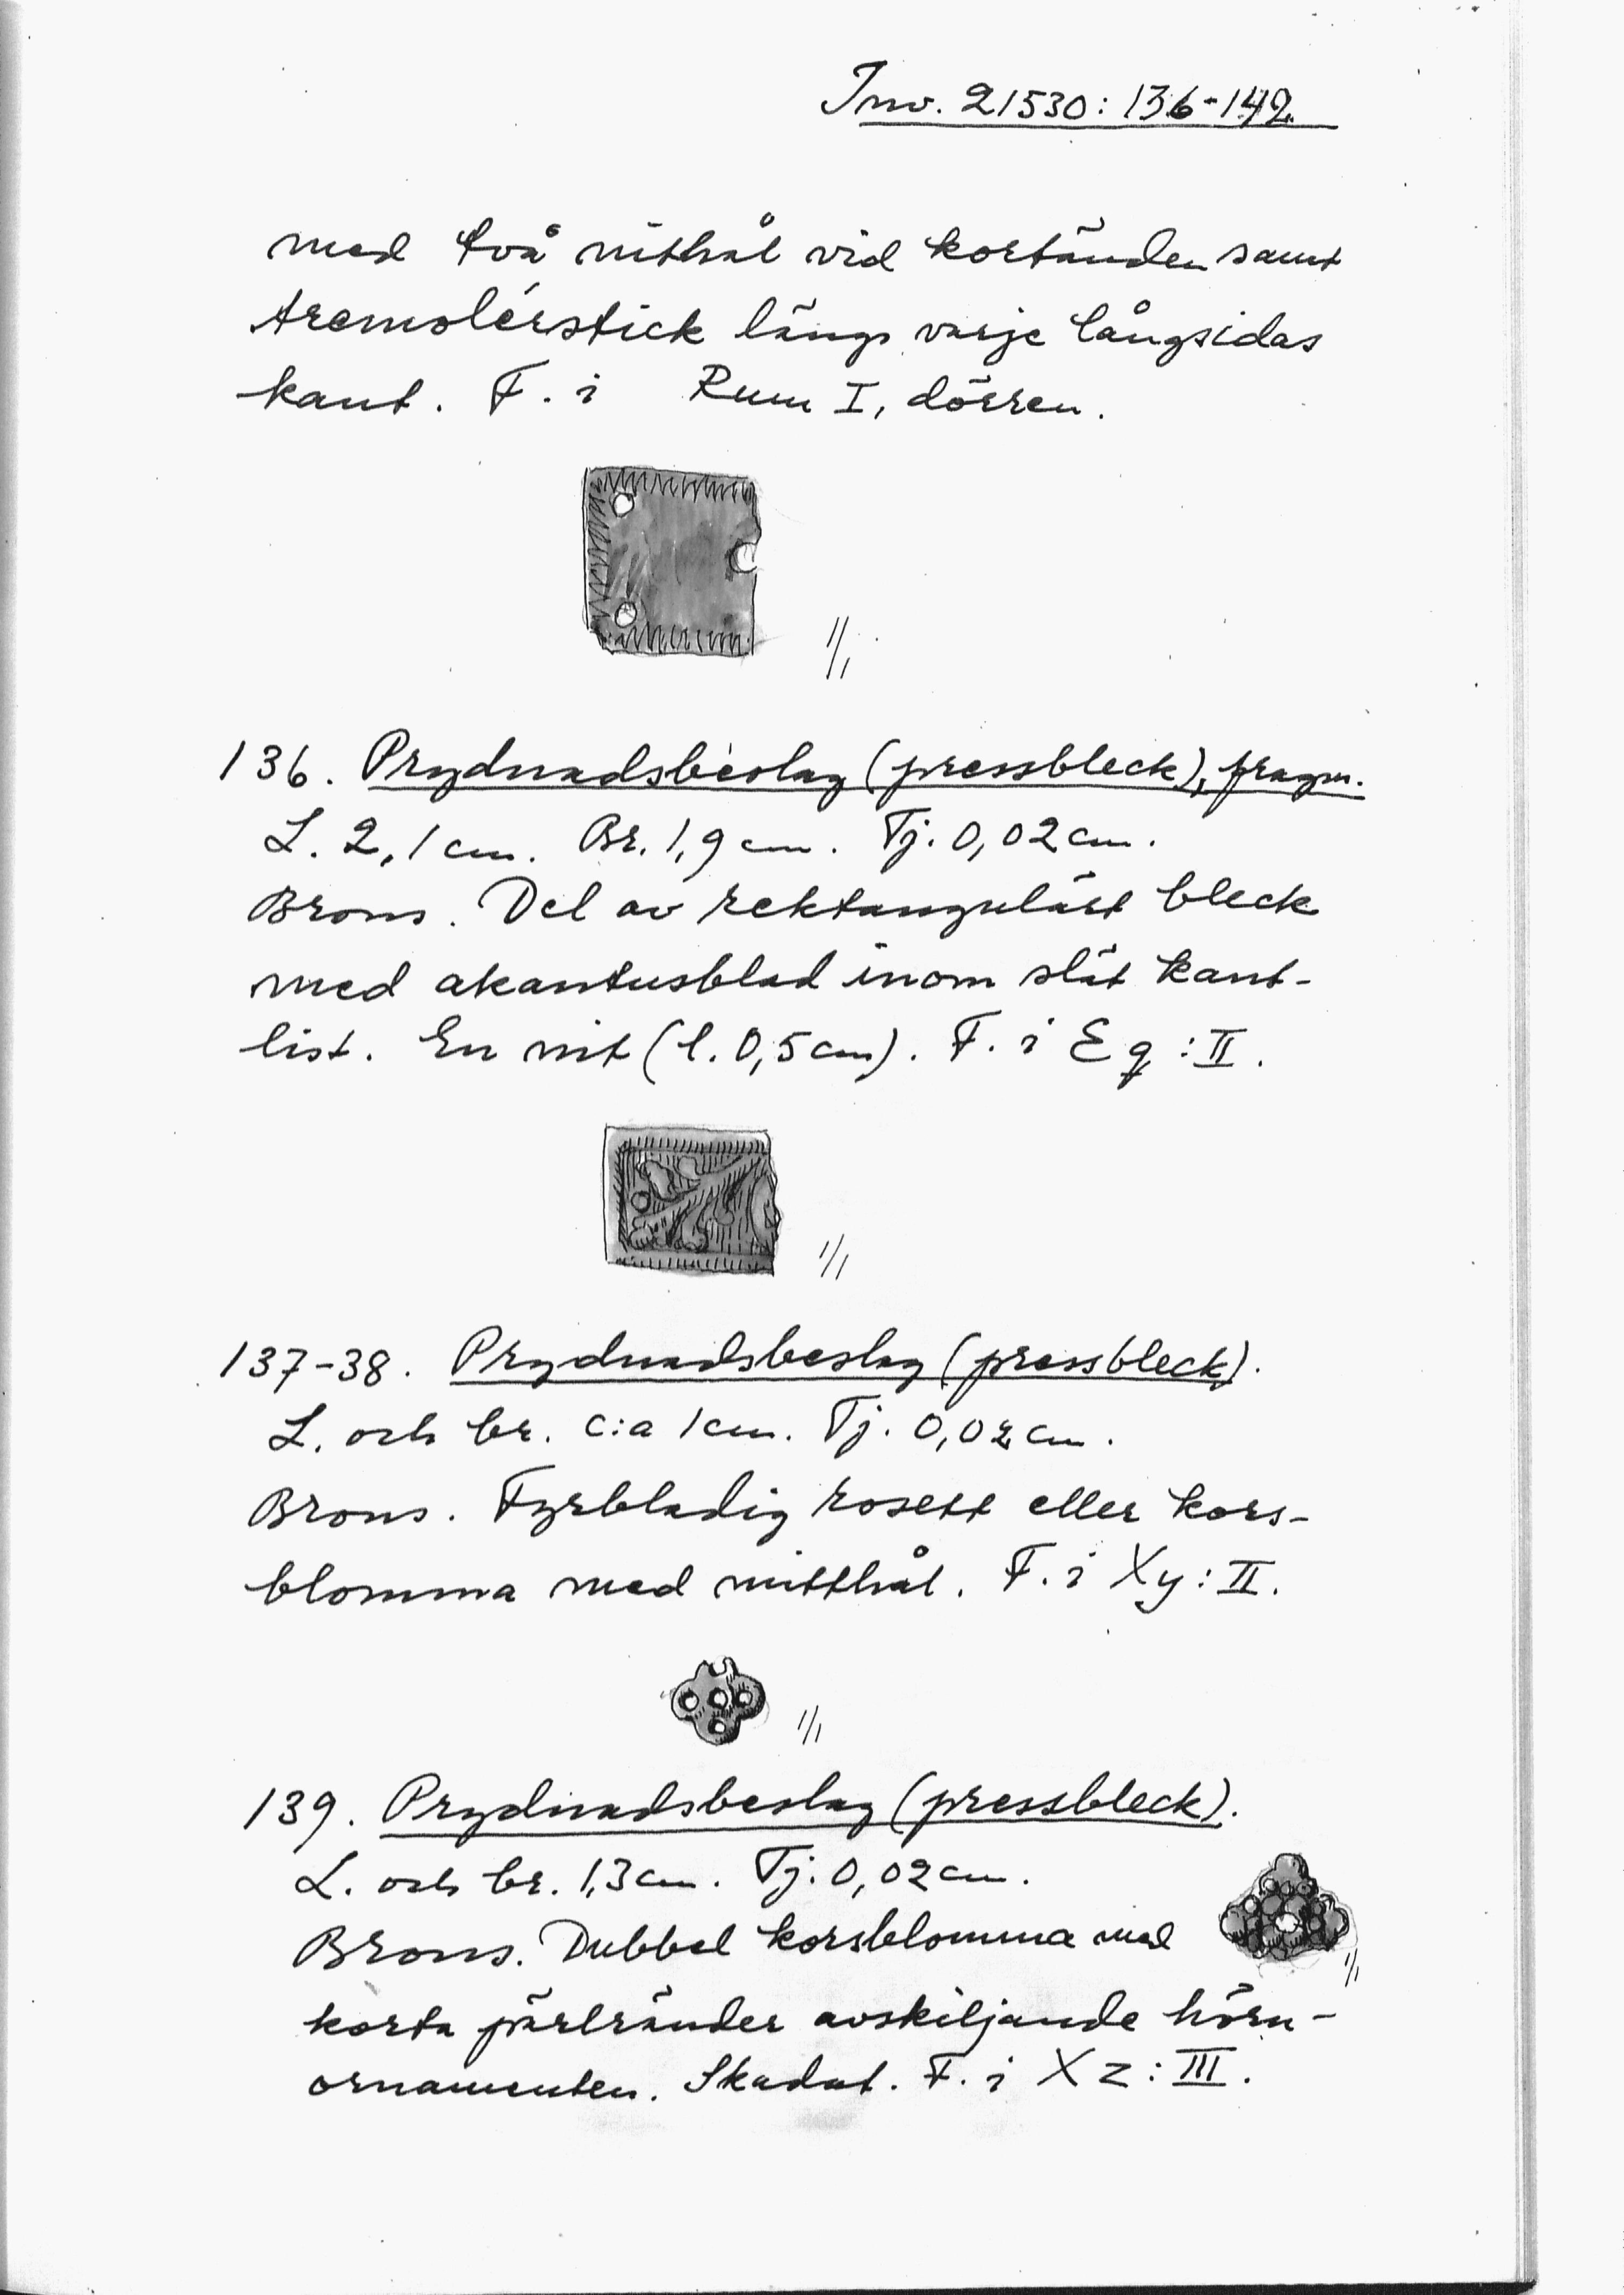 Inv. 21530:136-142
med två nithål vid kortänden samt
tremolérstick längs varje långsidas
kant. F. i Rum I, dörren.
1/1
136. Prydnadsbeslag (pressbleck), fragm.
L. 2,1 cm. Br. 1,9 cm. Tj. 0,02 cm.
Brons. Del av rektangulärt bleck
med akantusblad inom slät kant-
list. En nit (l. 0,5 cm). F. i Eq:II.
1/1
137-38. Prydnadsbeslag (pressbleck).
L. och br. c:a 1 cm. Tj. 0,02 cm.
Brons. Fyrbladig rosett eller kors-
blomma med mitthål. F. i Xy:II.
1/1
139. Prydnadsbeslag (pressbleck).
L. och br. 1,3 cm. Tj. 0,02 cm.
Brons. Dubbel korsblomma med
1/1
korta pärlränder avskiljande hörn-
ornamenten. Skadat. F. i Xz:III.